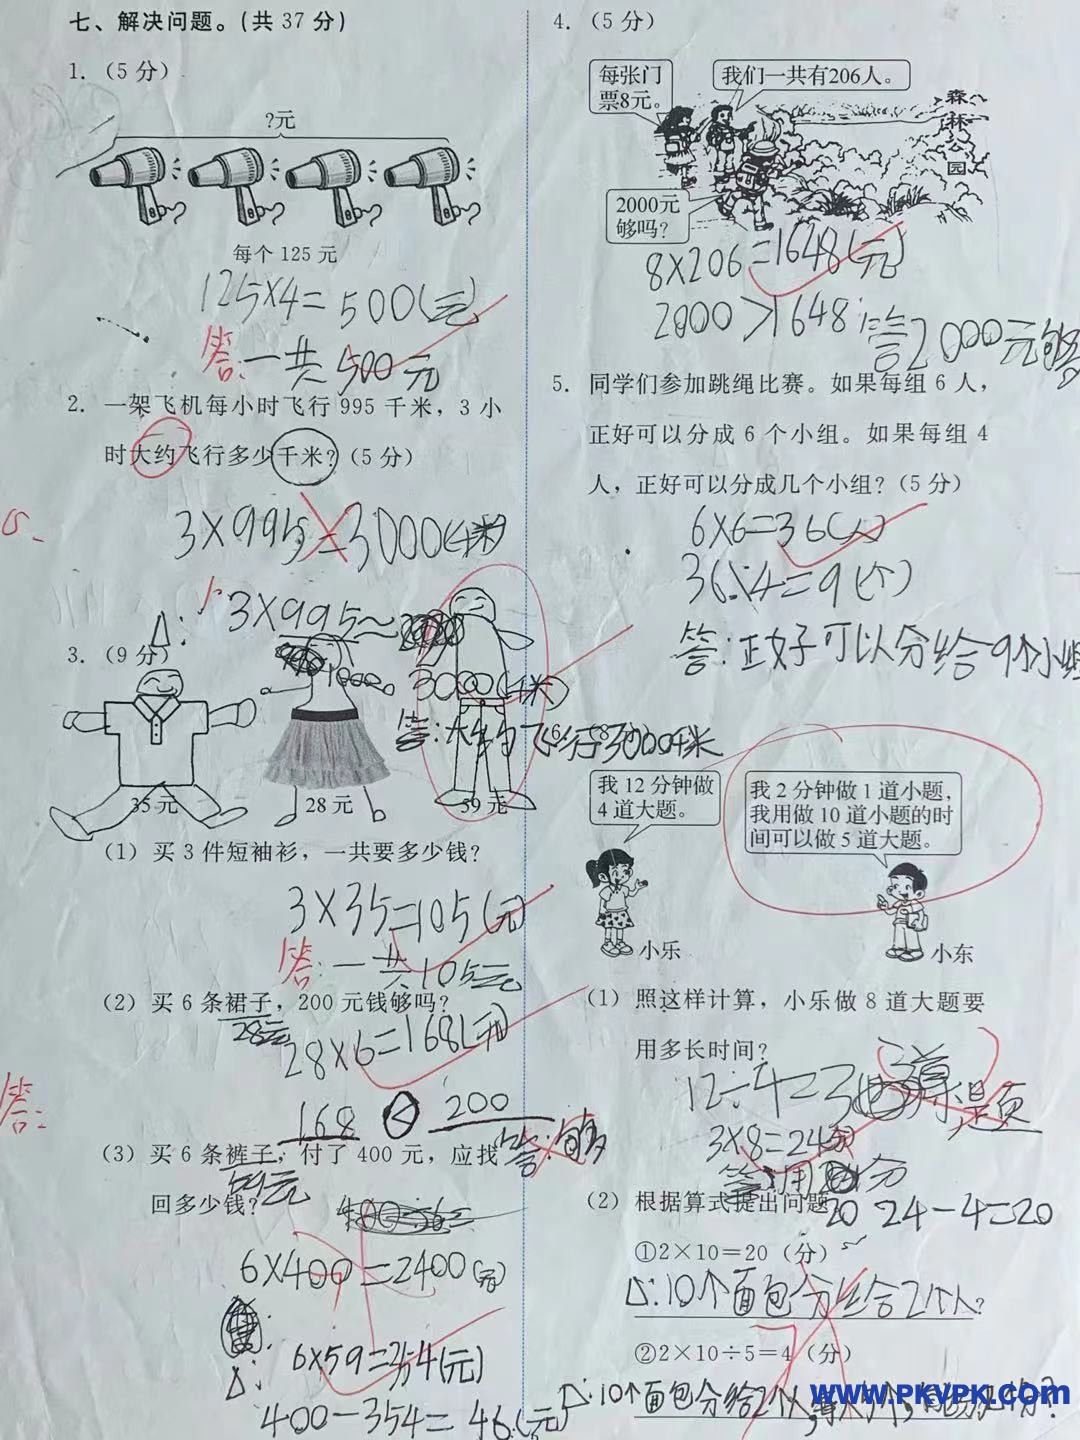 七、解决问题。(共 37 分)
1.（5 分）
?元
每个 125 元
125×4=500(元)
答:一共500元
2. 一架飞机每小时飞行 995 千米，3 小
时大约飞行多少千米?（5 分）
3×995=3000(千米)
△:3×995≈
3000(千米)
答:大约飞行3000千米
3.（9 分）
35 元
28 元
59 元
（1）买 3 件短袖衫，一共要多少钱?
3×35=105(元)
答:一共105元
（2）买 6 条裙子，200 元钱够吗?
28元
28×6=168(元)
168 < 200
答:够
答:
（3）买 6 条裤子，付了 400 元，应找
回多少钱?
59元
6×400=2400(元)
△:
6×59=354(元)
400-354=46(元)
4.（5 分）
每张门
票8元。
我们一共有206人。
森林公园
2000元
够吗?
8×206=1648(元)
2000>1648
答2000元够
5. 同学们参加跳绳比赛。如果每组 6 人，
正好可以分成 6 个小组。如果每组 4
人，正好可以分成几个小组?（5 分）
6×6=36(人)
36÷4=9(个)
答:正好可以分给9个小组
我 12 分钟做
4 道大题。
我 2 分钟做 1 道小题，
我用做 10 道小题的时
间可以做 5 道大题。
小乐
小东
（1）照这样计算，小乐做 8 道大题要
用多长时间?
12÷4=3
3×8=24分
（2）根据算式提出问题
20 24-4=20
①2×10=20（分）
△:10个面包分给2个人?
②2×10÷5=4（分）
△:10个面包分给2个人
www.PKVPK.com